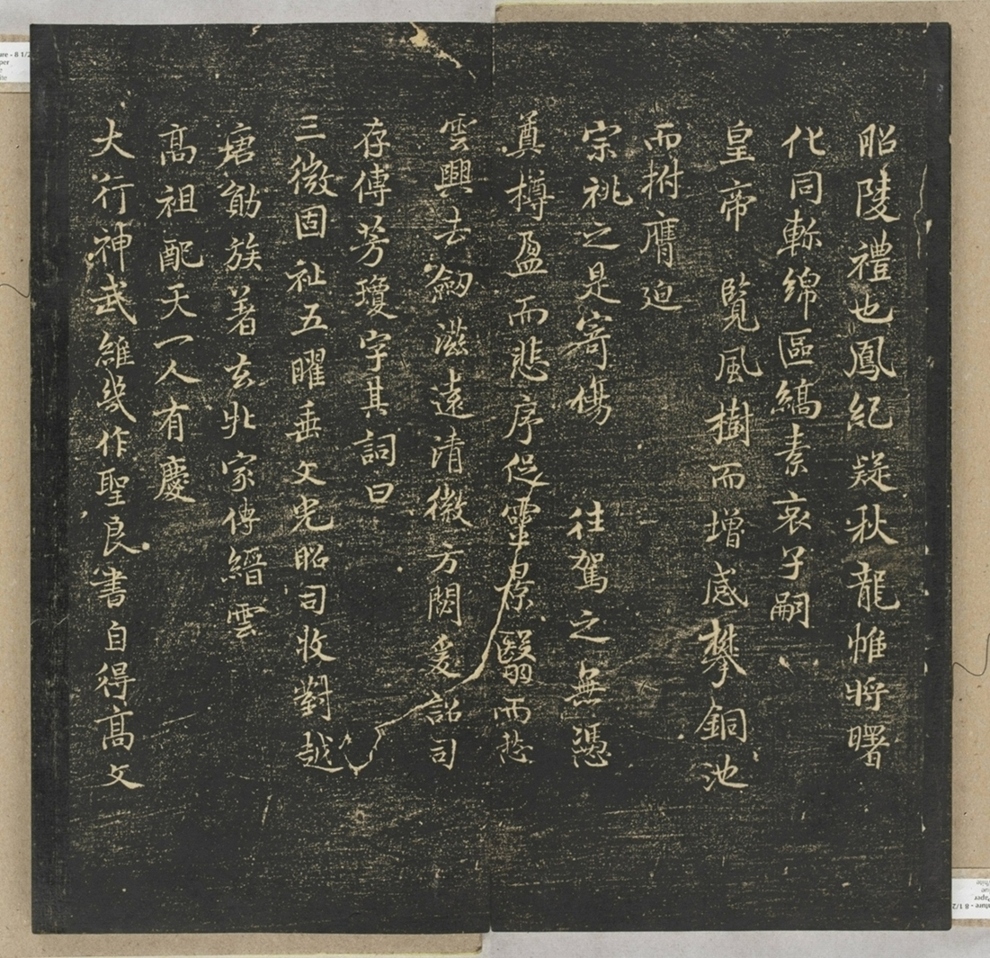 昭陵禮也鳳紀疑秋龍帷將曙
化同軫綿區縞素哀子嗣
皇帝覽風樹而增感攀銅池
而拊膺迫
宗祧之是寄傷往駕之無憑
奠樽盈而悲序促靈景翳而愁
雲興去劒滋遠清徽方閟爰詔司
存傳芳瓊字其詞曰
三微固祉五曜垂文光昭司牧對越
唐勛族著玄牝家傳縉雲
高祖配天一人有慶
大行神武維幾作聖良書自得高文